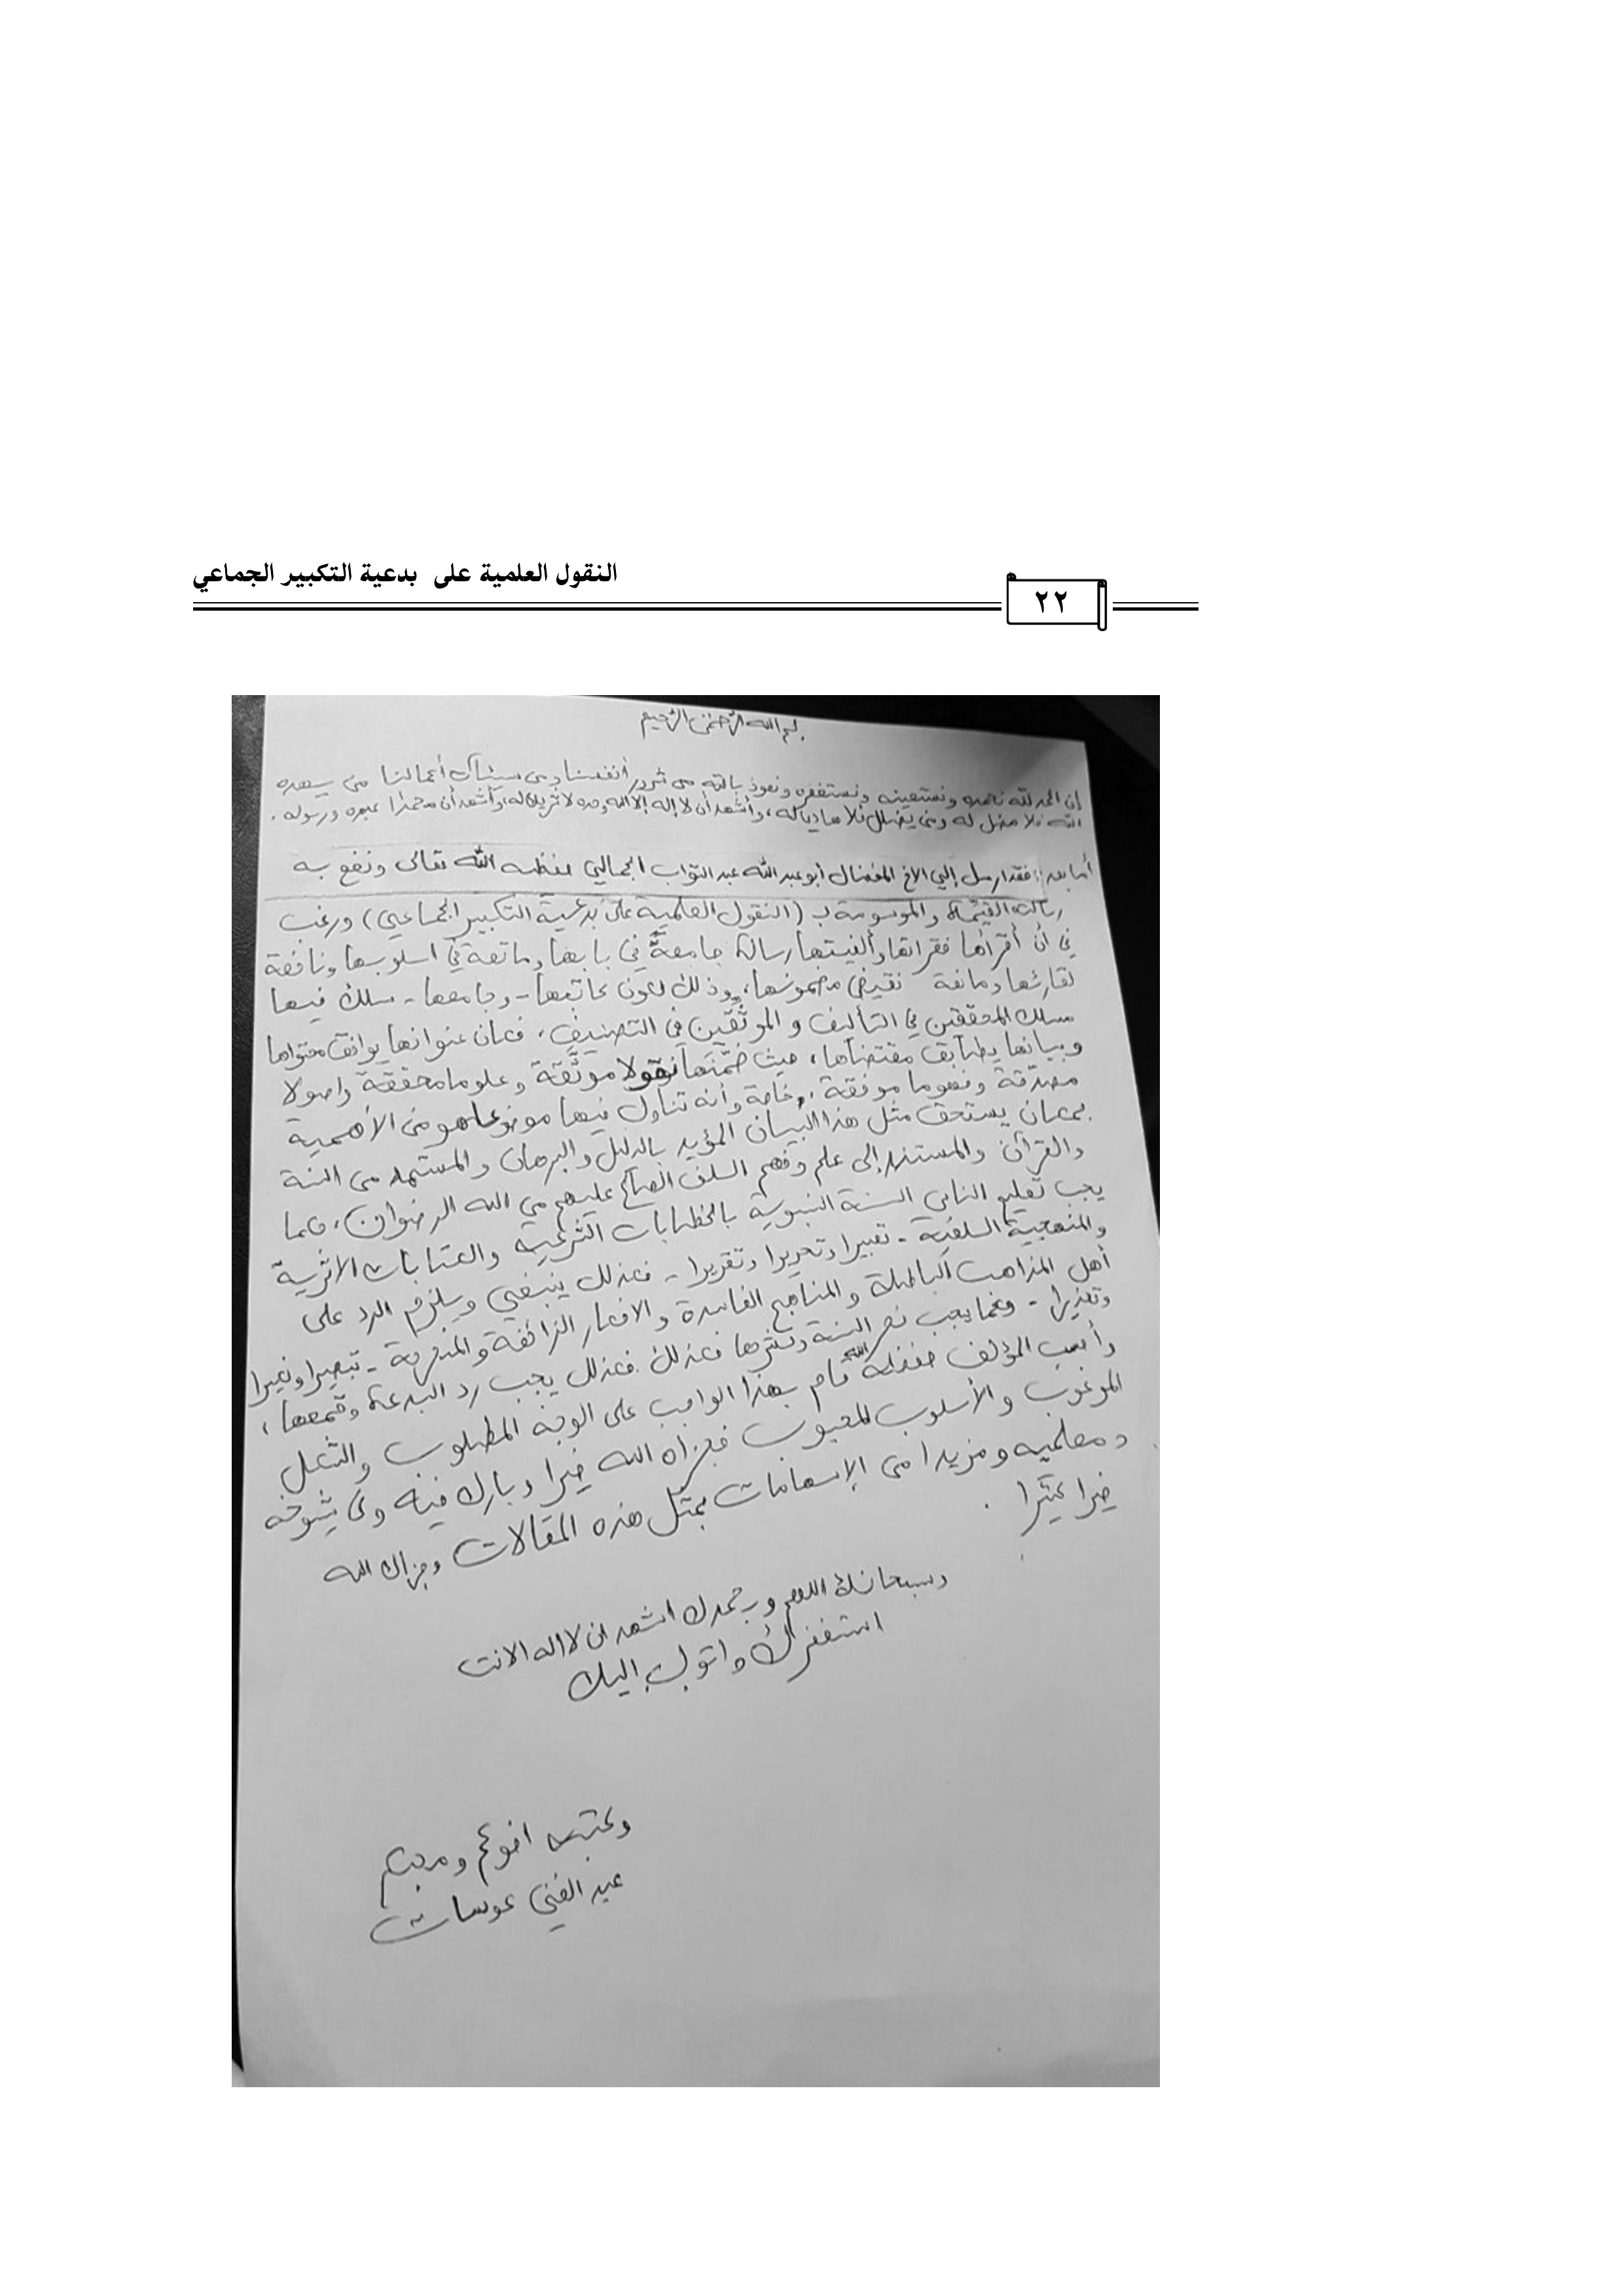 النقول العلمية على بدعية التكبير الجماعي
٢٢
بسم الله الرحمن الرحيم
إن الحمد لله نحمده ونستعينه ونستغفره ونعوذ بالله من شرور أنفسنا ومن سيئات أعمالنا من يهده
الله فلا مضل له ومن يضلل فلا هادي له، وأشهد أن لا إله إلا الله وحده لا شريك له، وأشهد أن محمدا عبده ورسوله.
أما بعد: فقد ارسل إلي الاخ المفضال أبو عبد الله عبد التواب الجمالي حفظه الله تعالى ونفع به
رسالته القيّمة والموسومة بـ (النقول العلمية على بدعية التكبير الجماعي) ورغب
في أن أقرأها فقرأتها وألفيتها رسالة جامعةً في بابها وماتعة في اسلوبها ونافعة
لقارئها ومانعة نقيض مضمونها، وذلك لكون كاتبها - وجامعها - سلك فيها
مسلك المحققين في التأليف والموثّقين في التصنيف، فكان عنوانها يوافق محتواها
وبيانها يطابق مقتضاها، حيث ضمّنها نقولا موثّقة وعلوما محققة واصولا
مصدّقة وفهوما موفقة، وخاصة وأنه تناول فيها موضوعا هو من الأهمية
بمكان يستحق مثل هذا البيان المؤيد بالدليل والبرهان والمستمد من السنة
والقرآن والمستند إلى علم وفهم السلف الصالح عليهم من الله الرضوان، فكما
يجب تعليم الناس السنة النبوية بالخطابات الشرعية والكتابات الاثرية
والمنهجية السلفية - تعبيرا وتحريرا وتقريرا - فكذلك ينبغي ويلزم الرد على
أهل المذاهب الباطلة والمناهج الفاسدة والافكار الزائفة والمنحرفة - تبصيرا ونكيرا
وتحذيرا - وكما يجب نصر السنة ونشرها فكذلك فكذلك يجب رد البدعة وقمعها،
وأحسب المؤلف حفظه الله قام بهذا الواجب على الوجه المطلوب والشكل
المرغوب والأسلوب المحبوب فجزاه الله خيرا وبارك فيه وفي شيوخه
ومعلميه ومزيدا من الإسهامات بمثل هذه المقالات وجزاك الله
خيرا كثيرا.
وسبحانك اللهم وبحمدك اشهد ان لا اله الا انت
استغفرك واتوب اليك
وكتبه اخوكم ومحبكم
عبد الغني عوسات